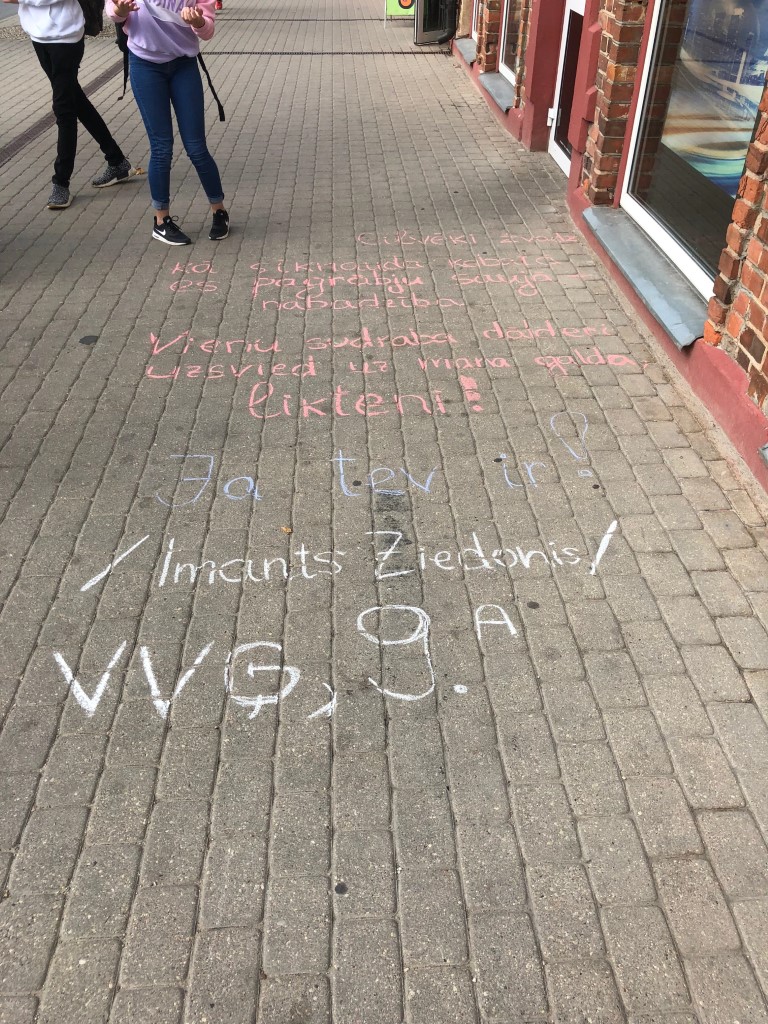 Cilvēki zvani
kā sīknauda kabatā
es pagrabju sauju
nabadzība
Vienu sudraba dālderi
uzsvied uz mana galda
likteni!
Ja tev ir!
/Imants Ziedonis/
VVĢ, 9.A